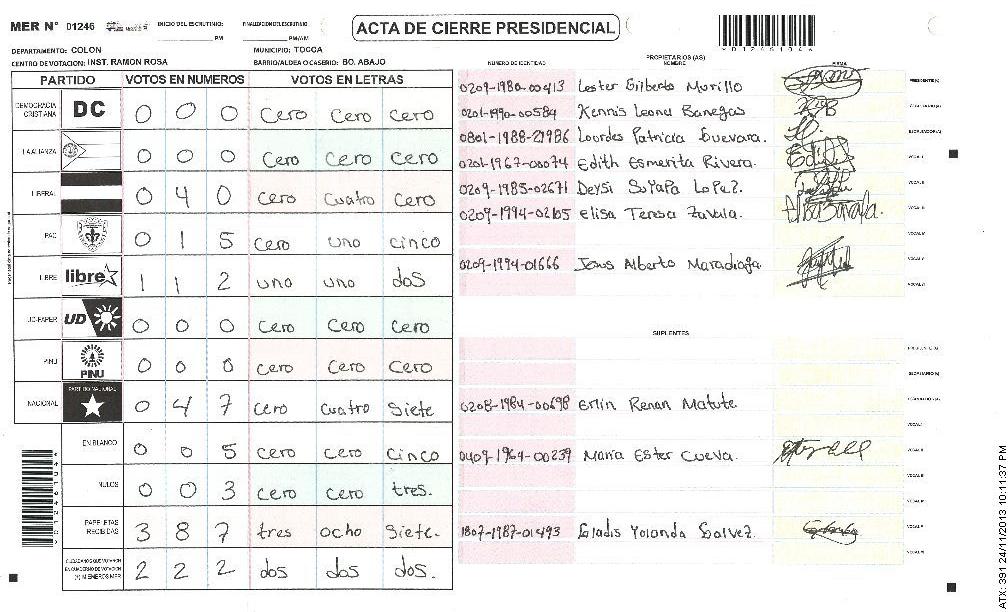 MER N° 01246
INICIO DEL ESCRUTINIO: PM
FINALIZACION DEL ESCRUTINIO: PM/AM
ACTA DE CIERRE PRESIDENCIAL
DEPARTAMENTO: COLON
MUNICIPIO: TOCOA
CENTRO DE VOTACION: INST. RAMON ROSA
BARRIO/ALDEA O CASERIO: BO. ABAJO
PARTIDO VOTOS EN NUMEROS VOTOS EN LETRAS
DEMOCRACIA CRISTIANA DC 0 0 0 Cero Cero Cero
LA ALIANZA 0 0 0 Cero Cero Cero
LIBERAL 0 4 0 Cero Cuatro Cero
PAC 0 1 5 Cero uno cinco
LIBRE libre 1 1 2 uno uno dos
UD-FAPER UD 0 0 0 Cero Cero Cero
PINU PINU 0 0 0 Cero Cero Cero
NACIONAL PARTIDO NACIONAL 0 4 7 Cero Cuatro Siete
EN BLANCO 0 0 5 Cero Cero Cinco
NULOS 0 0 3 Cero Cero tres.
PAPELETAS RECIBIDAS 3 8 7 tres ocho Siete.
CIUDADANOS QUE VOTARON EN CUADERNO DE VOTACION (+) MIEMBROS MER 2 2 2 dos dos dos.
PROPIETARIOS (AS)
NUMERO DE IDENTIDAD NOMBRE FIRMA
0209-1980-00413 Lester Gilberto Morillo PRESIDENTE(A)
0201-1990-00584 Kennis Leonu Banegas SECRETARIO(A)
0801-1988-21986 Lourdes Patricia Guevara. ESCRUTADOR(A)
0201-1967-00074 Edith Esmerita Rivera. VOCAL I
0209-1985-02671 Deysi Suyapa Lopez. VOCAL II
0209-1994-02105 Elisa Teresa Zavala. VOCAL III
VOCAL IV
0209-1994-01666 Jesus Alberto Maradiaga VOCAL V
VOCAL VI
SUPLENTES
PRESIDENTE(A)
SECRETARIO(A)
0208-1984-00698 Erlin Renan Matute ESCRUTADOR(A)
VOCAL I
0409-1964-00239 Maria Ester Cueva. VOCAL II
VOCAL III
VOCAL IV
1807-1987-01493 Gladis Yolanda Galvez. VOCAL V
VOCAL VI
ATX: 391 24/11/2013 10:11:37 PM